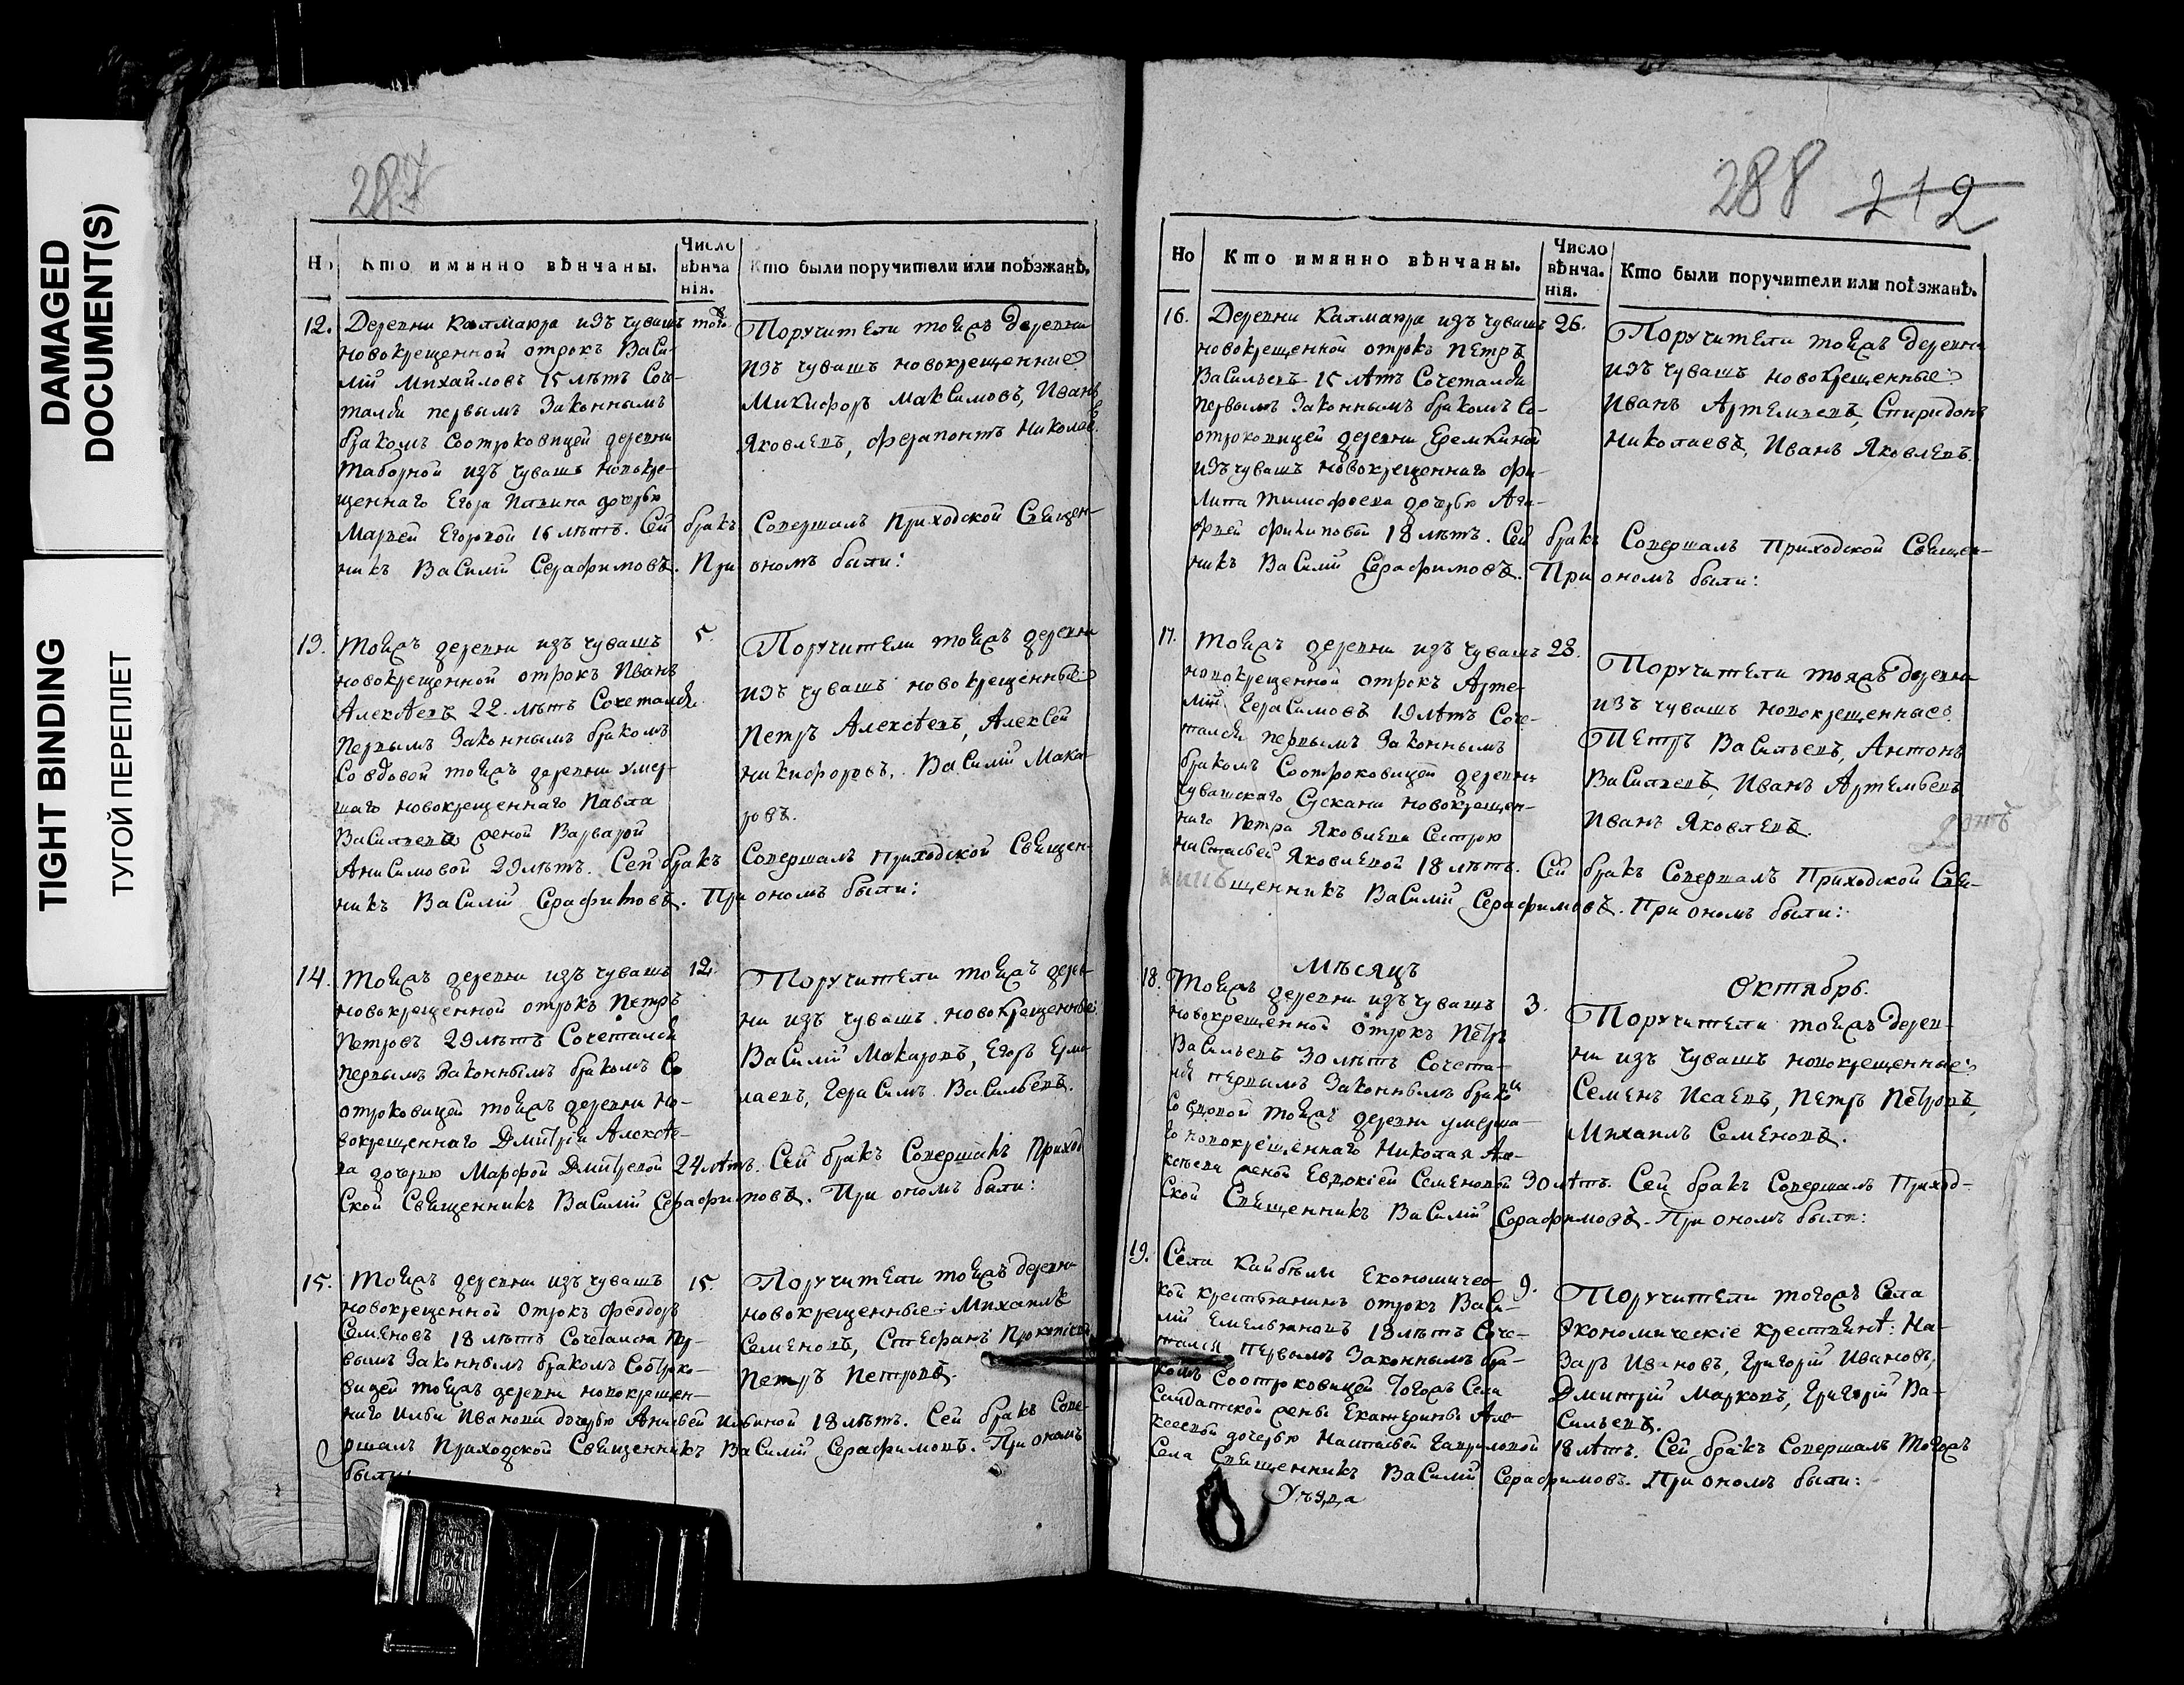 DAMAGED
DOCUMENT(S)
TIGHT BINDING
ТУГОЙ ПЕРЕПЛЕТ
287
Но
Кто имянно вѣнчаны.
Число
вѣнча
нія.
Кто были поручители или поѣзжанѣ.
12. Деревни Калмаюра изъ чувашъ
новокрещенной отрокъ Васи-
лій Михайловъ 15 лѣтъ Соче-
тался первымъ Законнымъ
бракомъ Соотроковицей деревни
изъ чувашъ новокре-
щеннаго Егора дочерью
Егоровой 16 лѣтъ. Сей бракъ Совершалъ Приходской Священ-
никъ Василій Серафимовъ. При ономъ были:
Поручители тояжъ деревни
изъ чувашъ новокрещенные
Никифоръ Максимовъ, Иванъ
Яковлевъ, Ферапонтъ Николаевъ
13. Тояжъ деревни изъ чувашъ 5.
новокрещенной отрокъ Иванъ
Алексѣевъ 22. лѣтъ Сочетался
Первымъ Законнымъ бракомъ
Совдовой тояжъ деревни умер-
шаго новокрещеннаго Павла
Васильева женой Варварой
Анисимовой 29 лѣтъ. Сей бракъ Совершалъ Приходской Священ-
никъ Василій Серафимовъ. При ономъ были:
Поручители тояжъ деревни
изъ чувашъ новокрещенные
Петръ Алексѣевъ, Алексѣй
Никифоровъ, Василій Мака-
ровъ.
14. Тояжъ деревни изъ чувашъ 12.
новокрещенной отрокъ Петръ
Петровъ 29 лѣтъ Сочетался
первымъ Законнымъ бракомъ Со
отроковицей тояжъ деревни но-
вокрещеннаго Дмитрія Алексѣе-
ва дочерью Марфой Дмитревой 24 лѣтъ. Сей бракъ Совершалъ Приход
ской Священникъ Василій Серафимовъ. При ономъ были:
Поручители тояжъ дерев-
ни изъ чувашъ новокрещенные
Василій Макаровъ, Егоръ Ерма-
лаевъ, Герасимъ Васильевъ.
15. Тояжъ деревни изъ чувашъ 15.
новокрещенной отрокъ Феодоръ
Семеновъ 18 лѣтъ Сочетался пер-
вымъ Законнымъ бракомъ Соотроко-
вицей тояжъ деревни новокрещен-
наго Ильи Иванова дочерью Ильиной 18 лѣтъ. Сей бракъ Сове-
ршалъ Приходской Священникъ Василій Серафимовъ. При ономъ
были:
Поручители тояжъ деревни
новокрещенные Михаилъ
Семеновъ, Стефанъ
Петръ Петровъ.
288 212
Но
Кто имянно вѣнчаны.
Число
вѣнча.
нія.
Кто были поручители или поѣзжанѣ.
16. Деревни Калмаюра изъ чувашъ 26.
новокрещенной отрокъ Петръ
Васильевъ 15 лѣтъ Сочетался
первымъ Законнымъ бракомъ Со-
отроковицей деревни Еремкиной
изъ чувашъ новокрещеннаго Фи-
липа Тимофеева дочерью Ага-
фьей Филиповой 18 лѣтъ. Сей бракъ Совершалъ Приходской Священ-
никъ Василій Серафимовъ. При ономъ были:
Поручители тояжъ деревни
изъ чувашъ новокрещенные
Иванъ Артемьевъ, Спиридонъ
Николаевъ, Иванъ Яковлевъ.
17. Тояжъ деревни изъ чувашъ 28.
новокрещенной отрокъ Арте-
мій Герасимовъ 19 лѣтъ Соче-
тался первымъ Законнымъ
бракомъ Соотроковицей деревни
чувашскаго Сускана новокрещен-
наго Петра Яковлева Сестрою
Настасьей Яковлевой 18 лѣтъ. Сей бракъ Совершалъ Приходской Свя-
щенникъ Василій Серафимовъ. При ономъ были:
Поручители тояжъ деревни
изъ чувашъ новокрещенные
Петръ Васильевъ, Антонъ
Васильевъ, Иванъ Артемьевъ
Иванъ Яковлевъ.
Мѣсяцъ Октябрь.
18. Тояжъ деревни изъ чувашъ 3.
новокрещенной отрокъ Петръ
Васильевъ 30 лѣтъ Сочета-
лся первымъ Законнымъ бракомъ
Совдовой тояжъ деревни умерша-
го новокрещеннаго Николая Але-
ксѣева женой Евдокіей Семеновой 30 лѣтъ. Сей бракъ Совершалъ Приход-
ской Священникъ Василій Серафимовъ. При ономъ были:
Поручители тояжъ дерев-
ни изъ чувашъ новокрещенные
Семенъ Исаевъ, Петръ Петровъ,
Михаилъ Семеновъ.
19. Села Кайбѣлы Економичес- 9.
кой крестьянинъ отрокъ Васи-
лій Емельяновъ 18 лѣтъ Соче-
тался первымъ Законнымъ бра-
комъ Соотроковицей тогожъ Села
Салдатской жены Екатерины Але-
ксеевой дочерью Настасьей Гавриловой 18 лѣтъ. Сей бракъ Совершалъ тогожъ
Села Священникъ Василій Серафимовъ. При ономъ были:
Поручители тогожъ Села
Экономическіе крестьянѣ: На-
заръ Ивановъ, Григорій Ивановъ,
Дмитрій Марковъ, Григорій Ва-
сильевъ.
Уѣзда